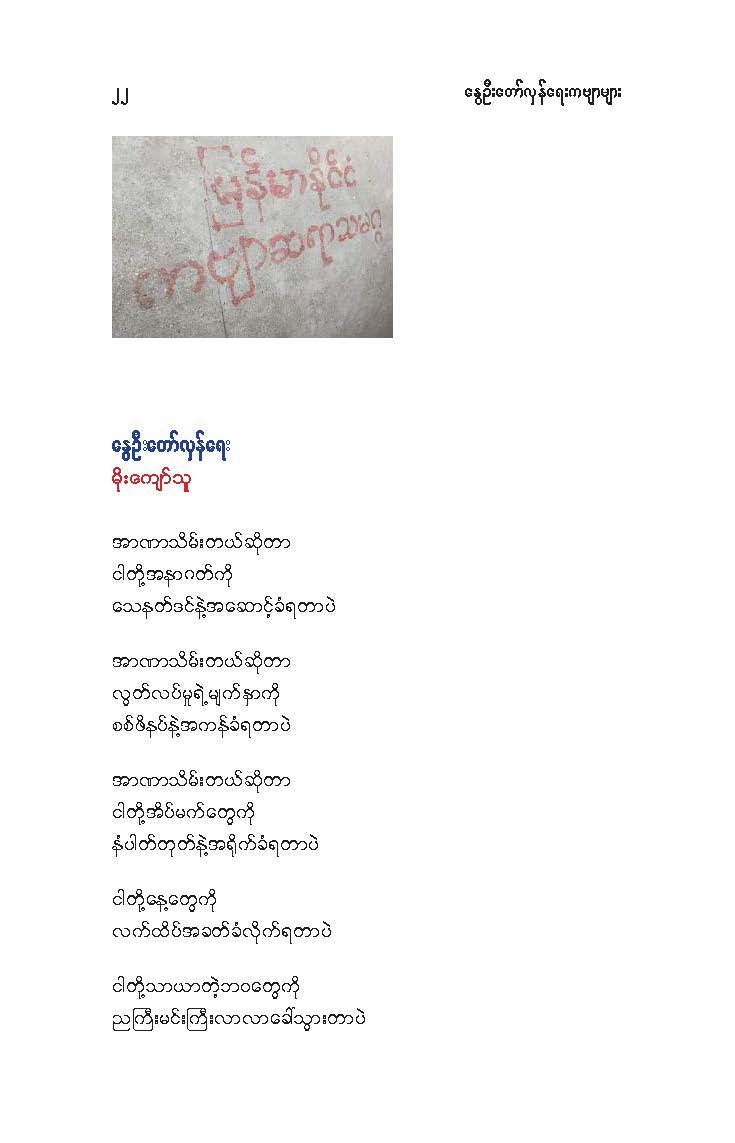 ၂၂
နွေဦးတော်လှန်ရေးကဗျာများ
မြန်မာနိုင်ငံ
ကဗျာဆရာသမဂ္ဂ
နွေဦးတော်လှန်ရေး
မိုးကျော်သူ
အာဏာသိမ်းတယ်ဆိုတာ
ငါတို့အနာဂတ်ကို
သေနတ်ဒင်နဲ့အဆောင့်ခံရတာပဲ
အာဏာသိမ်းတယ်ဆိုတာ
လွတ်လပ်မှုရဲ့မျက်နှာကို
စစ်ဖိနပ်နဲ့အကန်ခံရတာပဲ
အာဏာသိမ်းတယ်ဆိုတာ
ငါတို့အိပ်မက်တွေကို
နံပါတ်တုတ်နဲ့အရိုက်ခံရတာပဲ
ငါတို့နေ့တွေကို
လက်ထိပ်အခတ်ခံလိုက်ရတာပဲ
ငါတို့သာယာတဲ့ဘဝတွေကို
ညကြီးမင်းကြီးလာလာခေါ်သွားတာပဲ